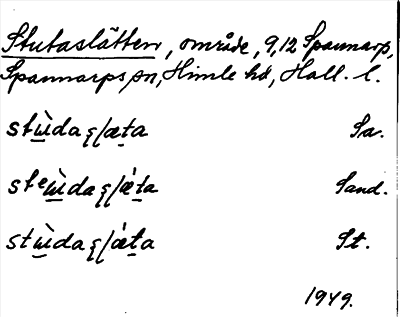 Stutaslätten, område, 9,12 Spannarp,
Spannarps sn, Himle hd, Hall. l.
stù̱daʂlæ̱ta Sa.
steù̱daʂlǽ̱ta Sand.
stù̱daʂlǽ̱ta St.
1949.